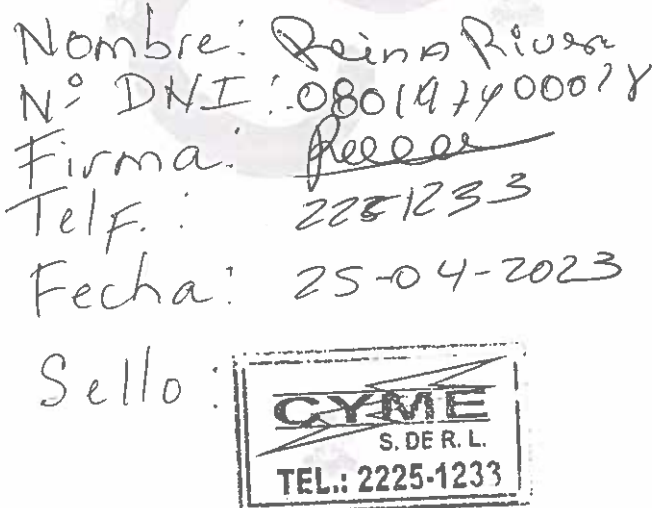 Nombre: Reina Rivera
Nº DNI:
Firma:
Telf.: 2251233
Fecha: 25-04-2023
Sello:
CYME
S. DE R. L.
TEL.: 2225-1233